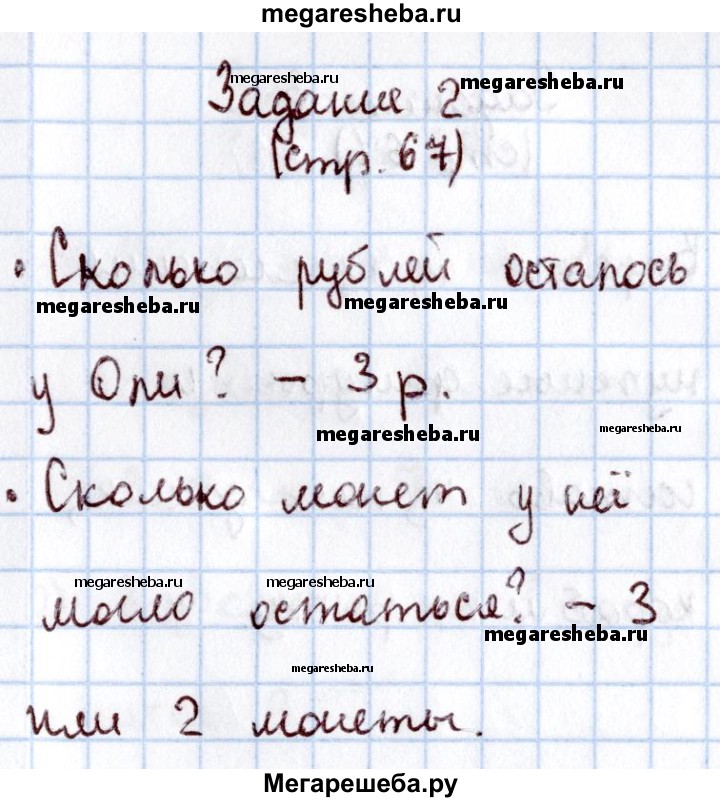 megaresheba.ru
megaresheba.ru
Задание 2 megaresheba.ru
(стр. 67)
• Сколько рублей осталось
megaresheba.ru megaresheba.ru
у Оли? – 3 р.
megaresheba.ru megaresheba.ru
• Сколько монет у неё
megaresheba.ru megaresheba.ru
могло остаться? – 3
megaresheba.ru
megaresheba.ru
или 2 монеты.
Мегарешеба.ру